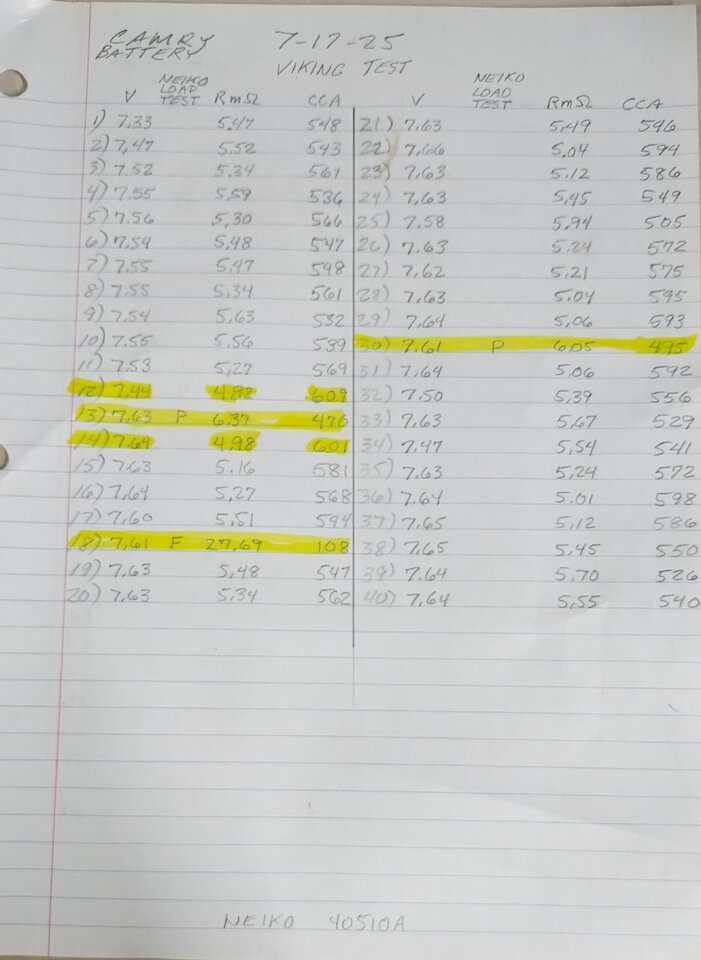 CAMRY 7-17-25
BATTERY
VIKING TEST
NEIKO NEIKO
LOAD LOAD
V TEST RmΩ CCA V TEST RmΩ CCA
1) 7.33 5.47 548 21) 7.63 5.49 546
2) 7.47 5.52 543 22) 7.66 5.04 594
3) 7.52 5.34 561 23) 7.63 5.12 586
4) 7.55 5.59 536 24) 7.63 5.45 549
5) 7.56 5.30 566 25) 7.58 5.94 505
6) 7.54 5.48 547 26) 7.63 5.24 572
7) 7.55 5.47 548 27) 7.62 5.21 575
8) 7.55 5.34 561 28) 7.63 5.04 595
9) 7.54 5.63 532 29) 7.64 5.06 593
10) 7.55 5.56 539 30) 7.61 P 6.05 495
11) 7.53 5.27 569 31) 7.64 5.06 592
12) 7.44 4.92 609 32) 7.50 5.39 556
13) 7.63 P 6.37 476 33) 7.63 5.67 529
14) 7.64 4.98 601 34) 7.47 5.54 541
15) 7.63 5.16 581 35) 7.63 5.24 572
16) 7.64 5.27 568 36) 7.64 5.01 598
17) 7.60 5.51 544 37) 7.65 5.12 586
18) 7.61 F 27.69 108 38) 7.65 5.45 550
19) 7.63 5.48 547 39) 7.64 5.70 526
20) 7.63 5.34 562 40) 7.64 5.55 540
NEIKO 40510A